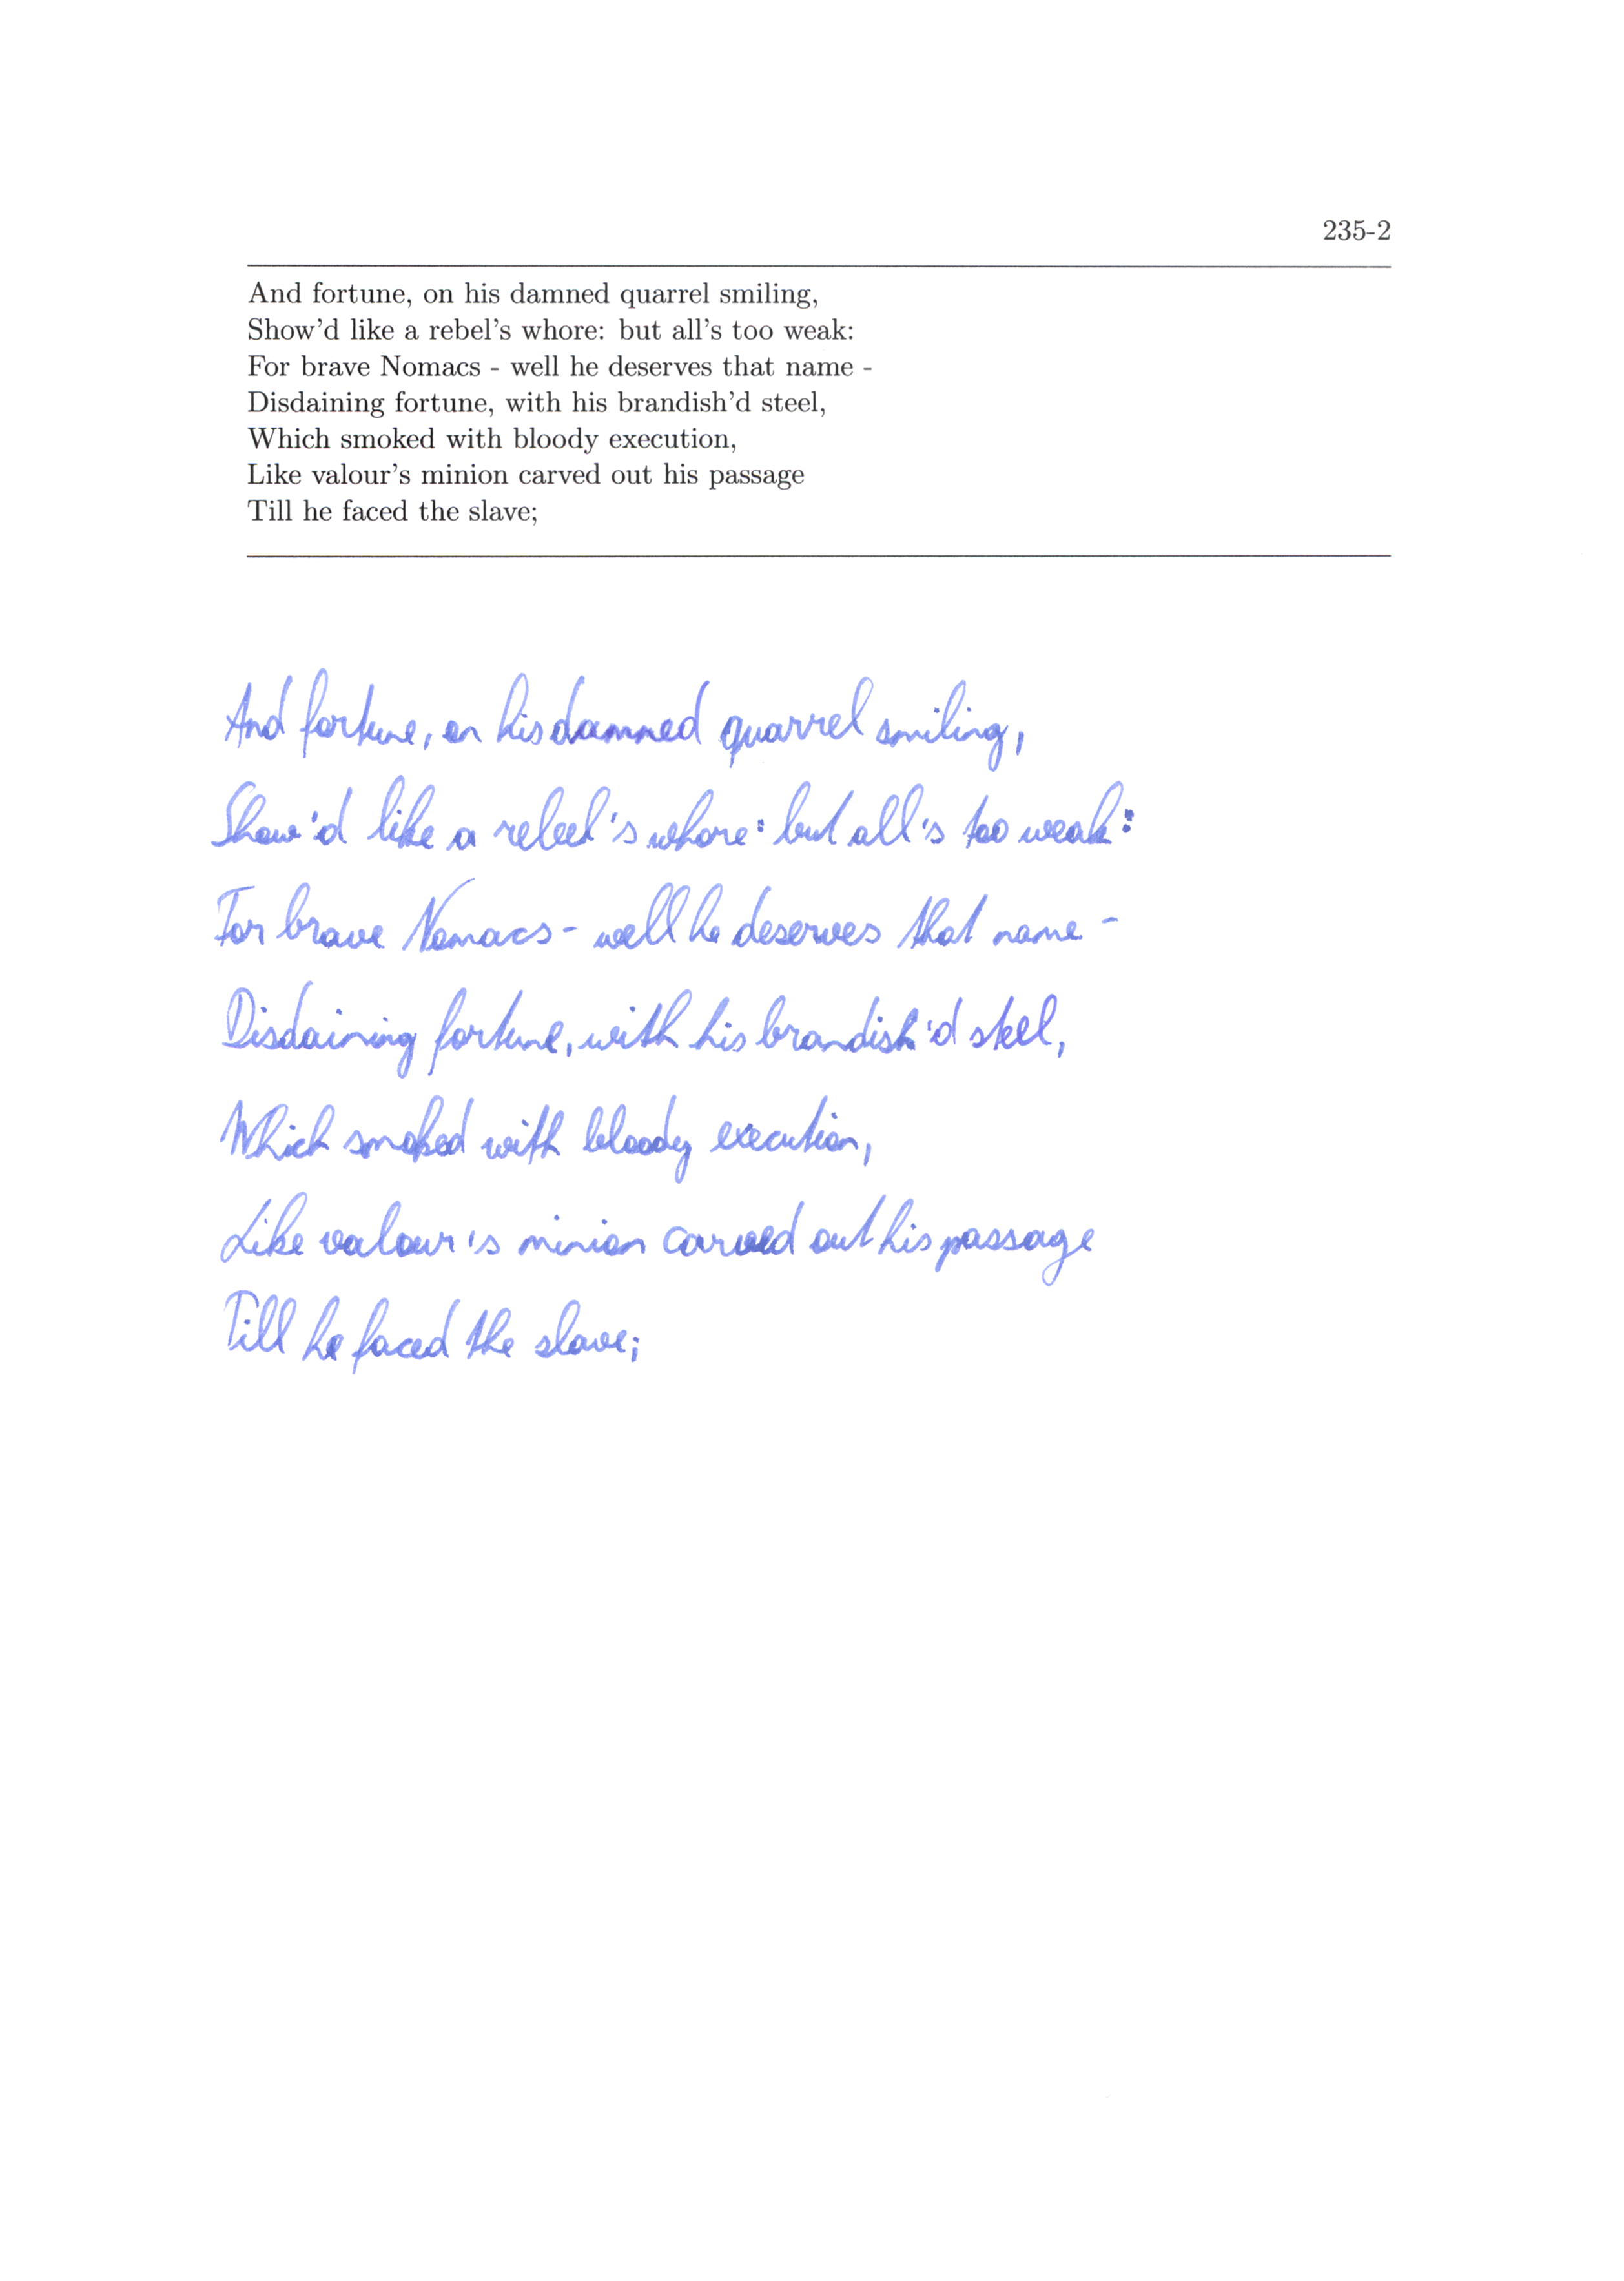 235-2
And fortune, on his damned quarrel smiling,
Show'd like a rebel's whore: but all's too weak:
For brave Nomacs - well he deserves that name -
Disdaining fortune, with his brandish'd steel,
Which smoked with bloody execution,
Like valour's minion carved out his passage
Till he faced the slave;
And fortune, on his damned quarrel smiling,
Show'd like a rebel's whore: but all's too weak:
For brave Nomacs - well he deserves that name -
Disdaining fortune, with his brandish'd steel,
Which smoked with bloody execution,
Like valour's minion carved out his passage
Till he faced the slave;